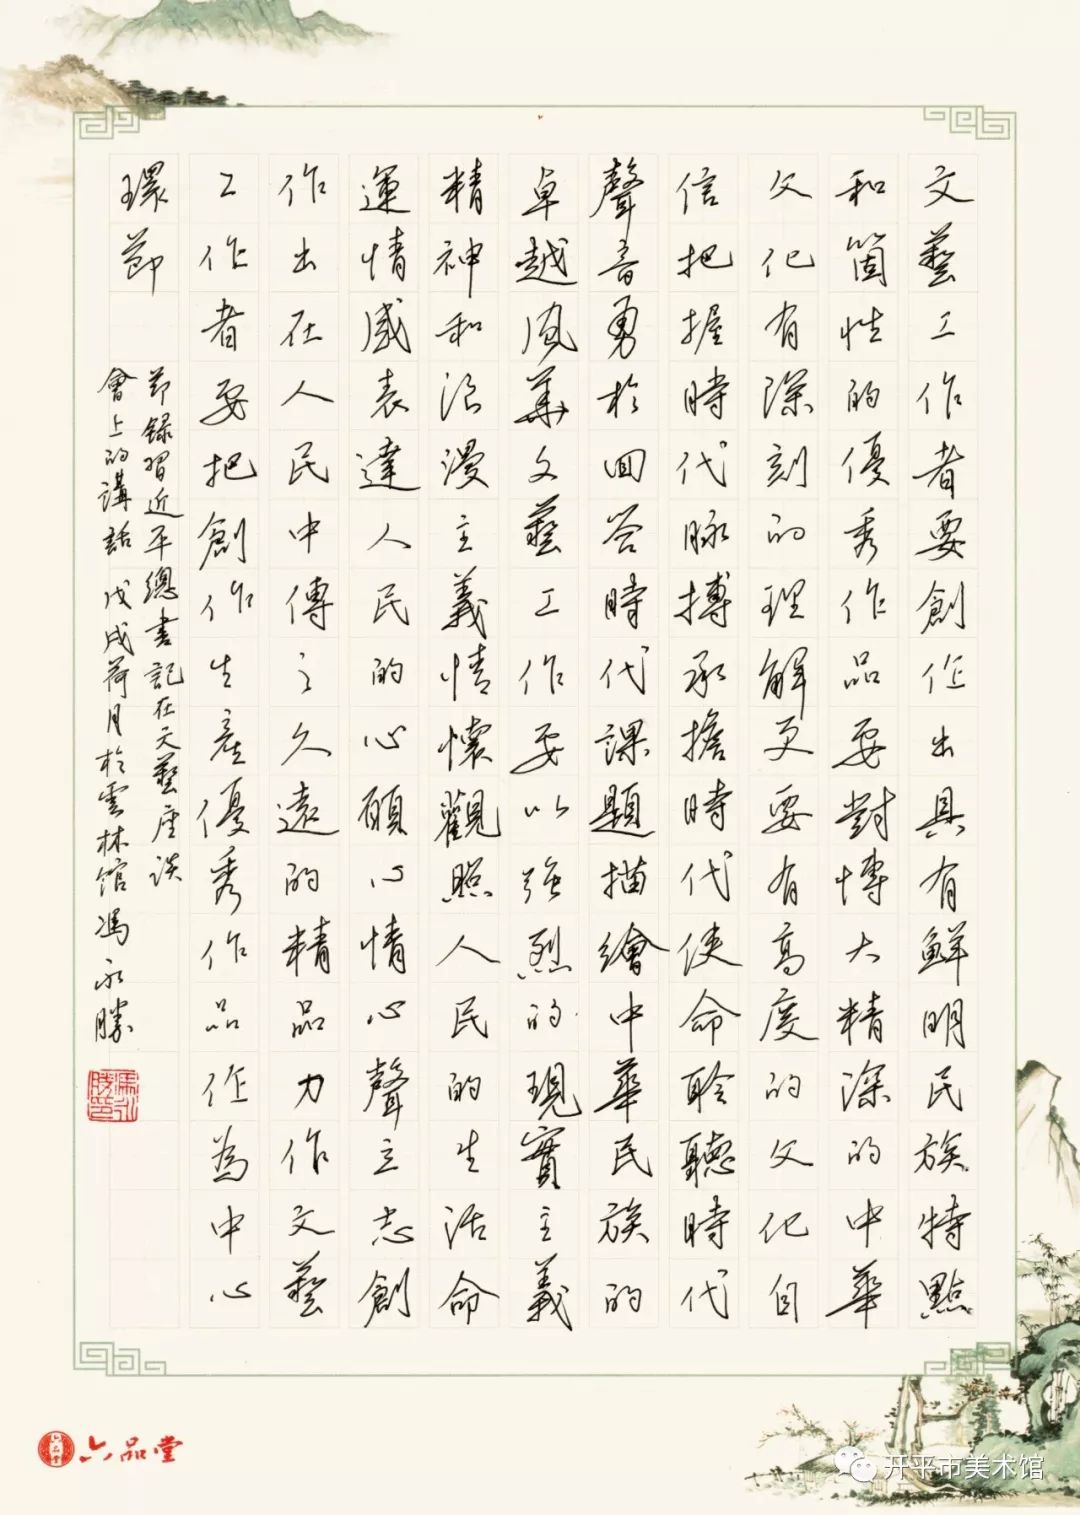 文藝工作者要創作出具有鮮明民族特點
和箇性的優秀作品要對博大精深的中華
文化有深刻的理解更要有高度的文化自
信把握時代脉搏承擔時代使命聆聽時代
聲音勇於回答時代課題描繪中華民族的
卓越風華文藝工作要以強烈的現實主義
精神和浪漫主義情懷觀照人民的生活命
運情感表達人民的心願心情心聲立志創
作出在人民中傳之久遠的精品力作文藝
工作者要把創作生產優秀作品作為中心
環節
節錄習近平總書記在文藝座談
會上的講話 戊戌荷月於雲林館馮永勝
六品堂
开平市美术馆